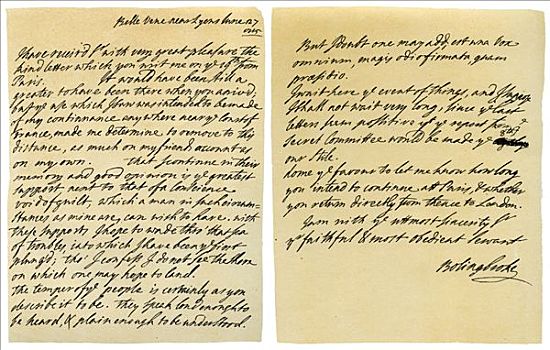 Belle Vene near Lyons June 27
1715
I have receiv'd Sr with very great pleasure the
kind letter which you writ me on ye 19th from
Paris. It would have been still a
greater to have been there when you arriv'd,
but ye use which I saw was intended to be made
of my continuance any where near ye Coast of
France, made me determine to remove to this
distance, as much on my friends account as
on my own. that I continue in their
memory and good opinion is ye greatest
support next to that of a Conscience
void of guilt, which a man in such circum-
stances as mine are, can wish to have. with
these supports I hope to wade thro' that sea
of troubles into which I have been first
plung'd; tho' I confess I do not see the shore
on which one may hope to land.
the temper of ye people is certainly as you
describe it to be. They speak loud enough to
be heard, & plain enough to be understood.
But I doubt one may add, est una vox
omnium, magis odio firmata quam
præsidio.
I wait here ye event of things, and I suppose
I shall not wait very long, since ye last
letters seem positive yt ye report from ye
Secret Committee would be made ye
our Stile.
done ye favour to let me know how long
you intend to continue att Paris, & whether
you return directly from thence to London.
I am with ye uttmost sincerity Sr
yr faithful & most obedient servant
Bolingbroke